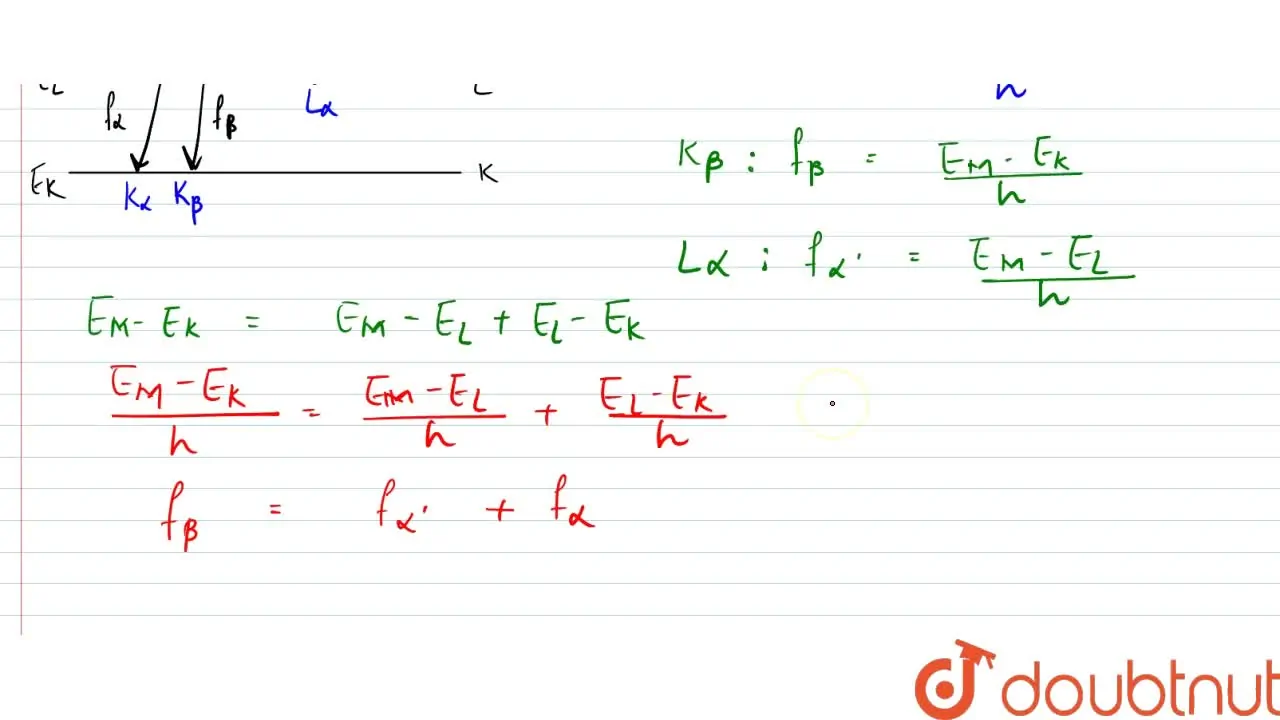 fα fβ Lα
EK Kα Kβ K
n
Kβ : fβ = EM - EK / h
Lα : fα' = EM - EL / h
EM - EK = EM - EL + EL - EK
EM - EK / h = EM - EL / h + EL - EK / h
fβ = fα' + fα
doubtnut